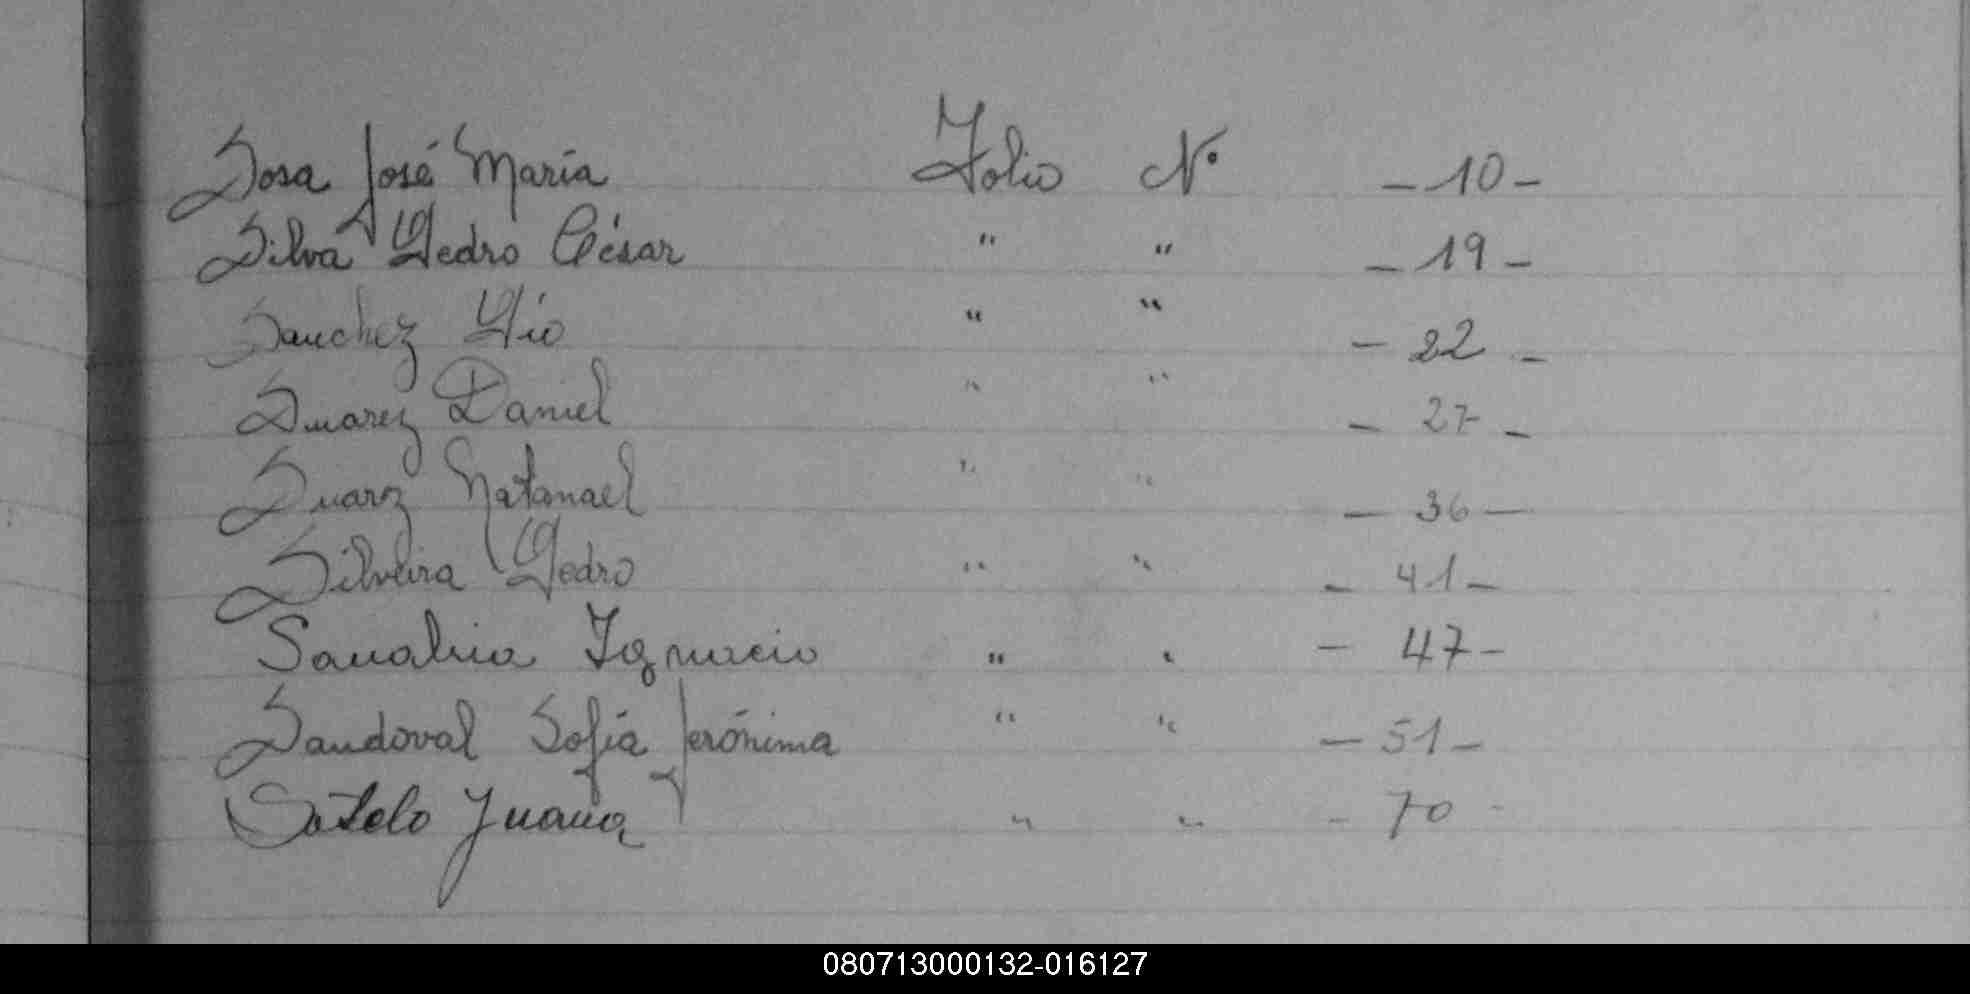 Sosa José María Folio Nº -10-
Silva Pedro César " " -19-
Sanchez Pío " " -22-
Suarez Daniel " " -27-
Suarz Natanael " " -36-
Silveira Pedro " " -41-
Sanabria Ignacio " " -47-
Sandoval Sofía Jerónima " " -51-
Sotelo Juana " " -70-
080713000132-016127